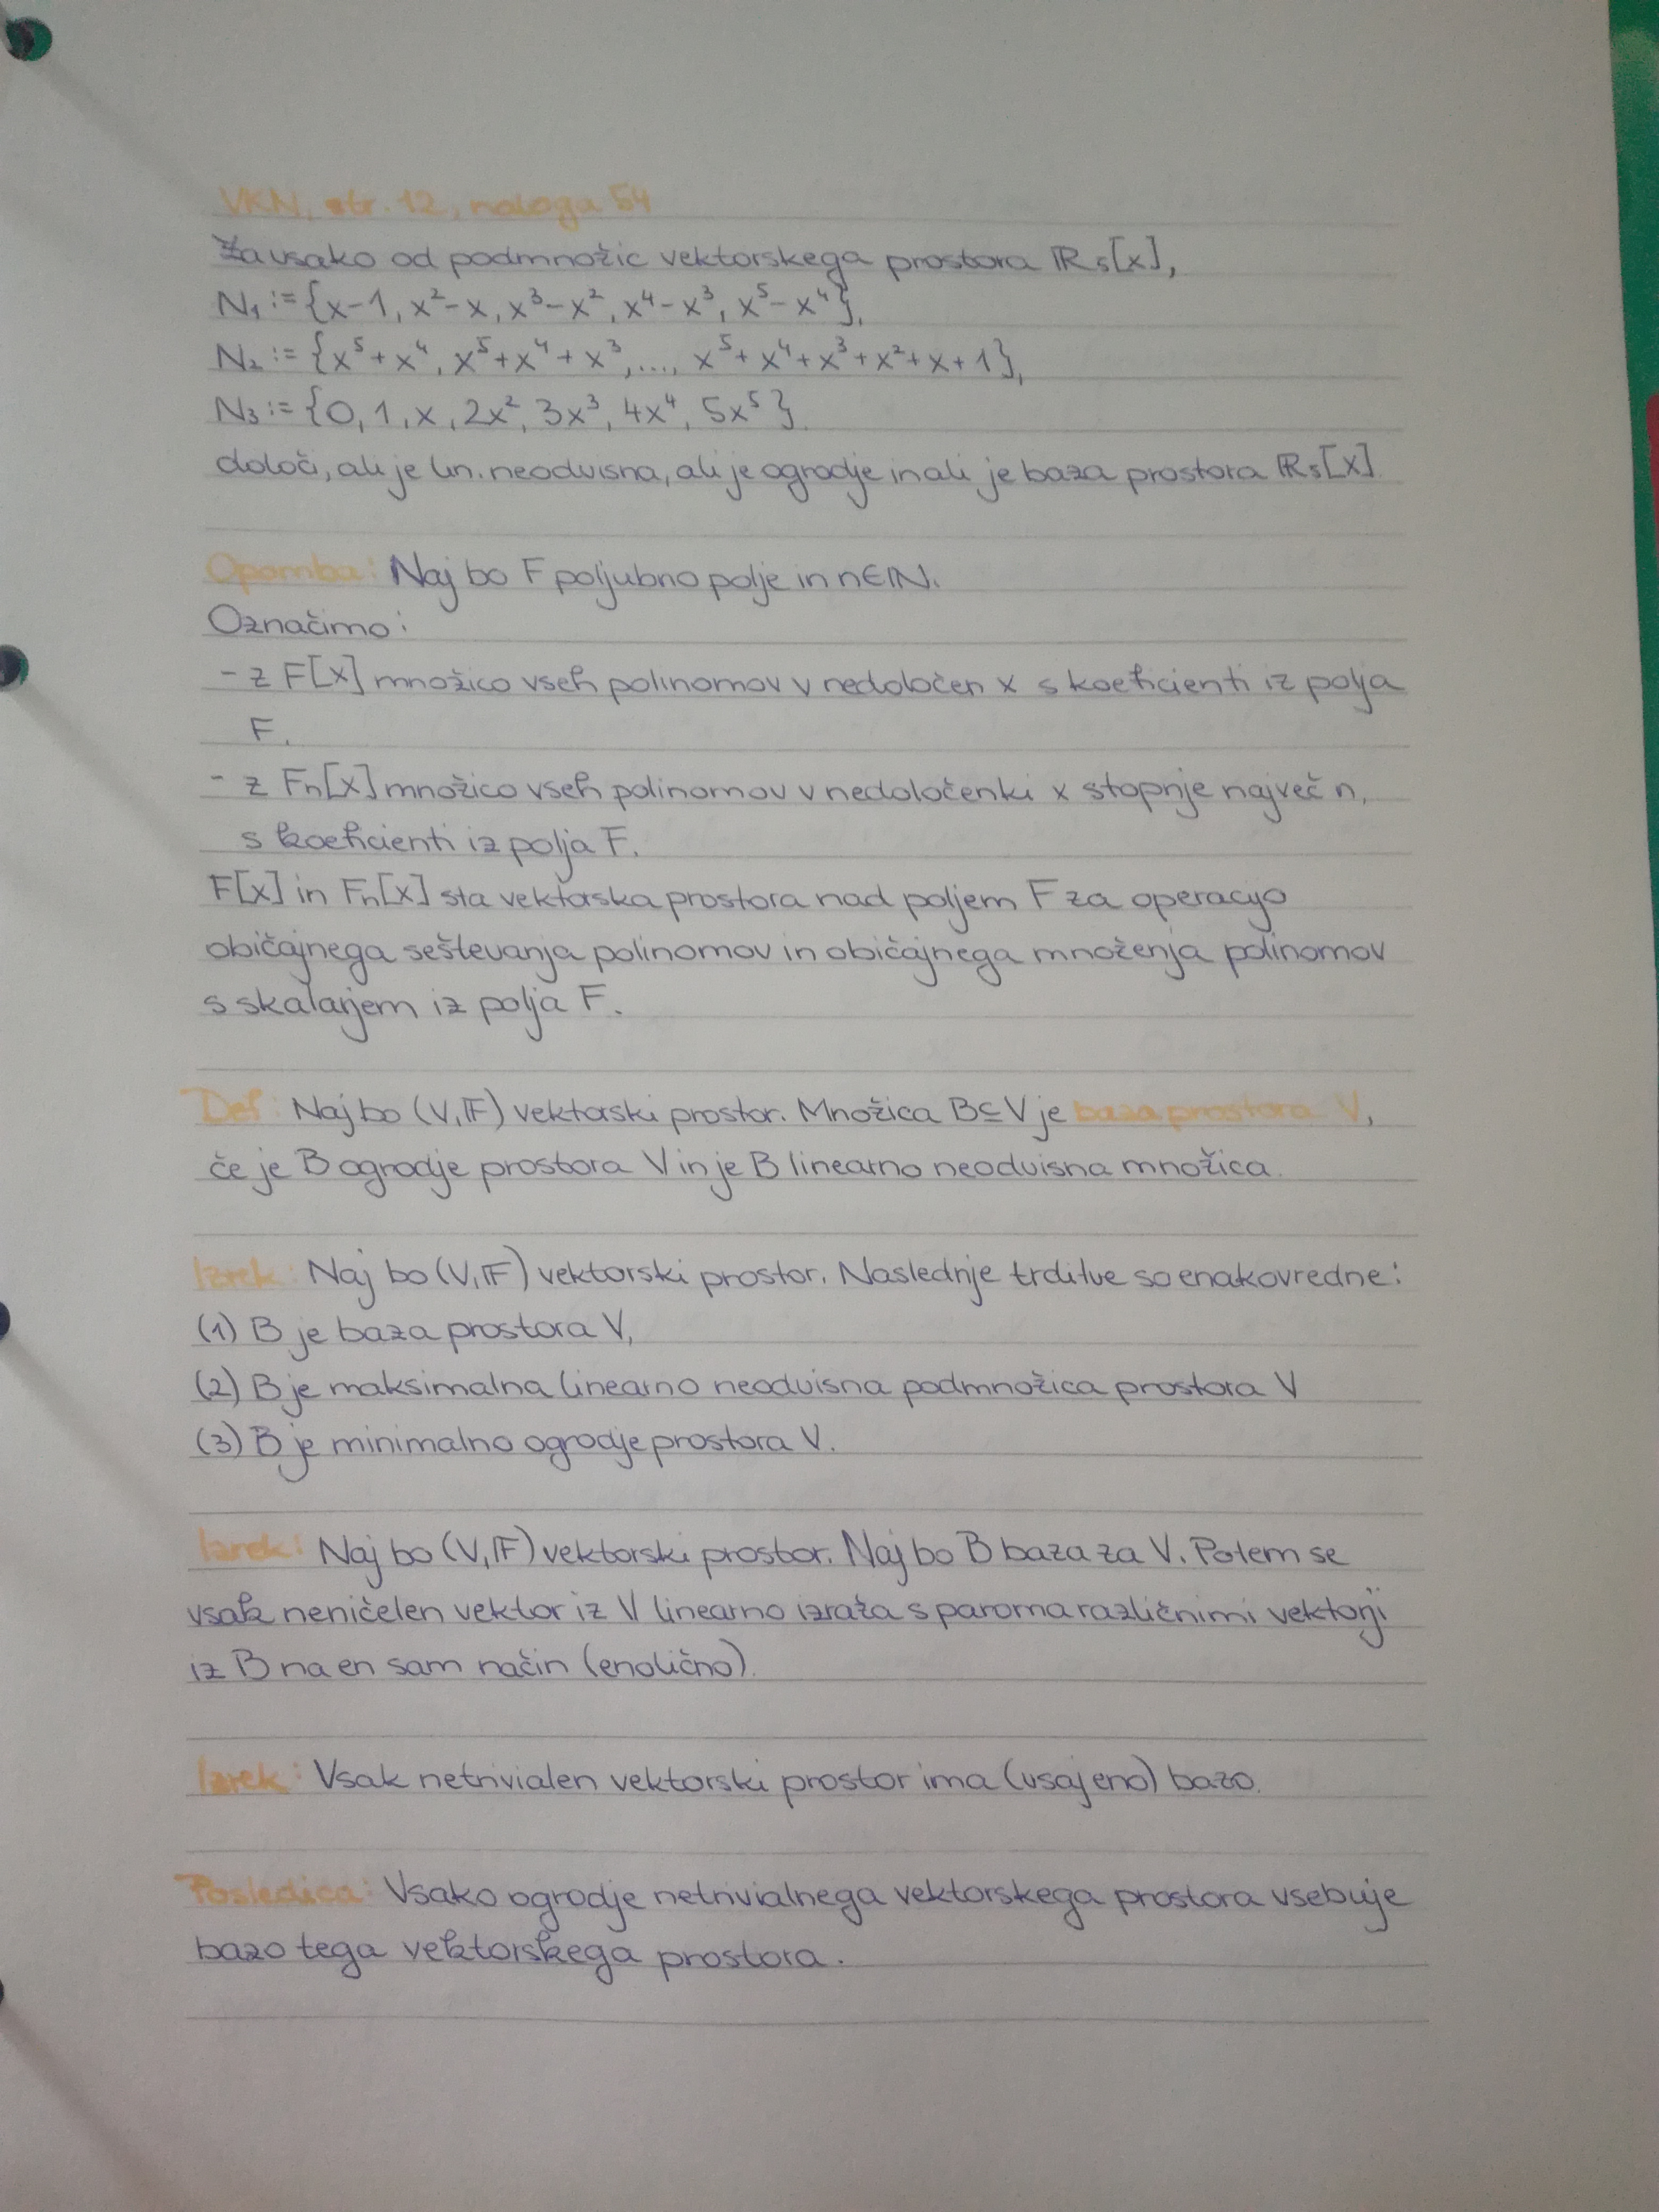 VKN, str. 12, naloga 54
Za vsako od podmnožic vektorskega prostora ℝ₅[x],
N₁ := {x-1, x²-x, x³-x², x⁴-x³, x⁵-x⁴},
N₂ := {x⁵+x⁴, x⁵+x⁴+x³, ..., x⁵+x⁴+x³+x²+x+1},
N₃ := {0, 1, x, 2x², 3x³, 4x⁴, 5x⁵}
določi, ali je lin. neodvisna, ali je ogrodje in ali je baza prostora ℝ₅[x]
Opomba: Naj bo F poljubno polje in n∈ℕ.
Označimo:
- z F[x] množico vseh polinomov v nedoločen x s koeficienti iz polja
F.
- z Fₙ[x] množico vseh polinomov v nedoločenki x stopnje največ n,
s koeficienti iz polja F.
F[x] in Fₙ[x] sta vektorska prostora nad poljem F za operacijo
običajnega seštevanja polinomov in običajnega množenja polinomov
s skalarjem iz polja F.
Def: Naj bo (V, 𝔽) vektorski prostor. Množica B⊆V je baza prostora V,
če je B ogrodje prostora V in je B linearno neodvisna množica.
Izrek: Naj bo (V, 𝔽) vektorski prostor. Naslednje trditve so enakovredne:
(1) B je baza prostora V,
(2) B je maksimalna linearno neodvisna podmnožica prostora V
(3) B je minimalno ogrodje prostora V.
Izrek: Naj bo (V, 𝔽) vektorski prostor. Naj bo B baza za V. Potem se
vsak neničelen vektor iz V linearno izraža s paroma različnimi vektorji
iz B na en sam način (enolično).
Izrek: Vsak netrivialen vektorski prostor ima (vsaj eno) bazo.
Posledica: Vsako ogrodje netrivialnega vektorskega prostora vsebuje
bazo tega vektorskega prostora.